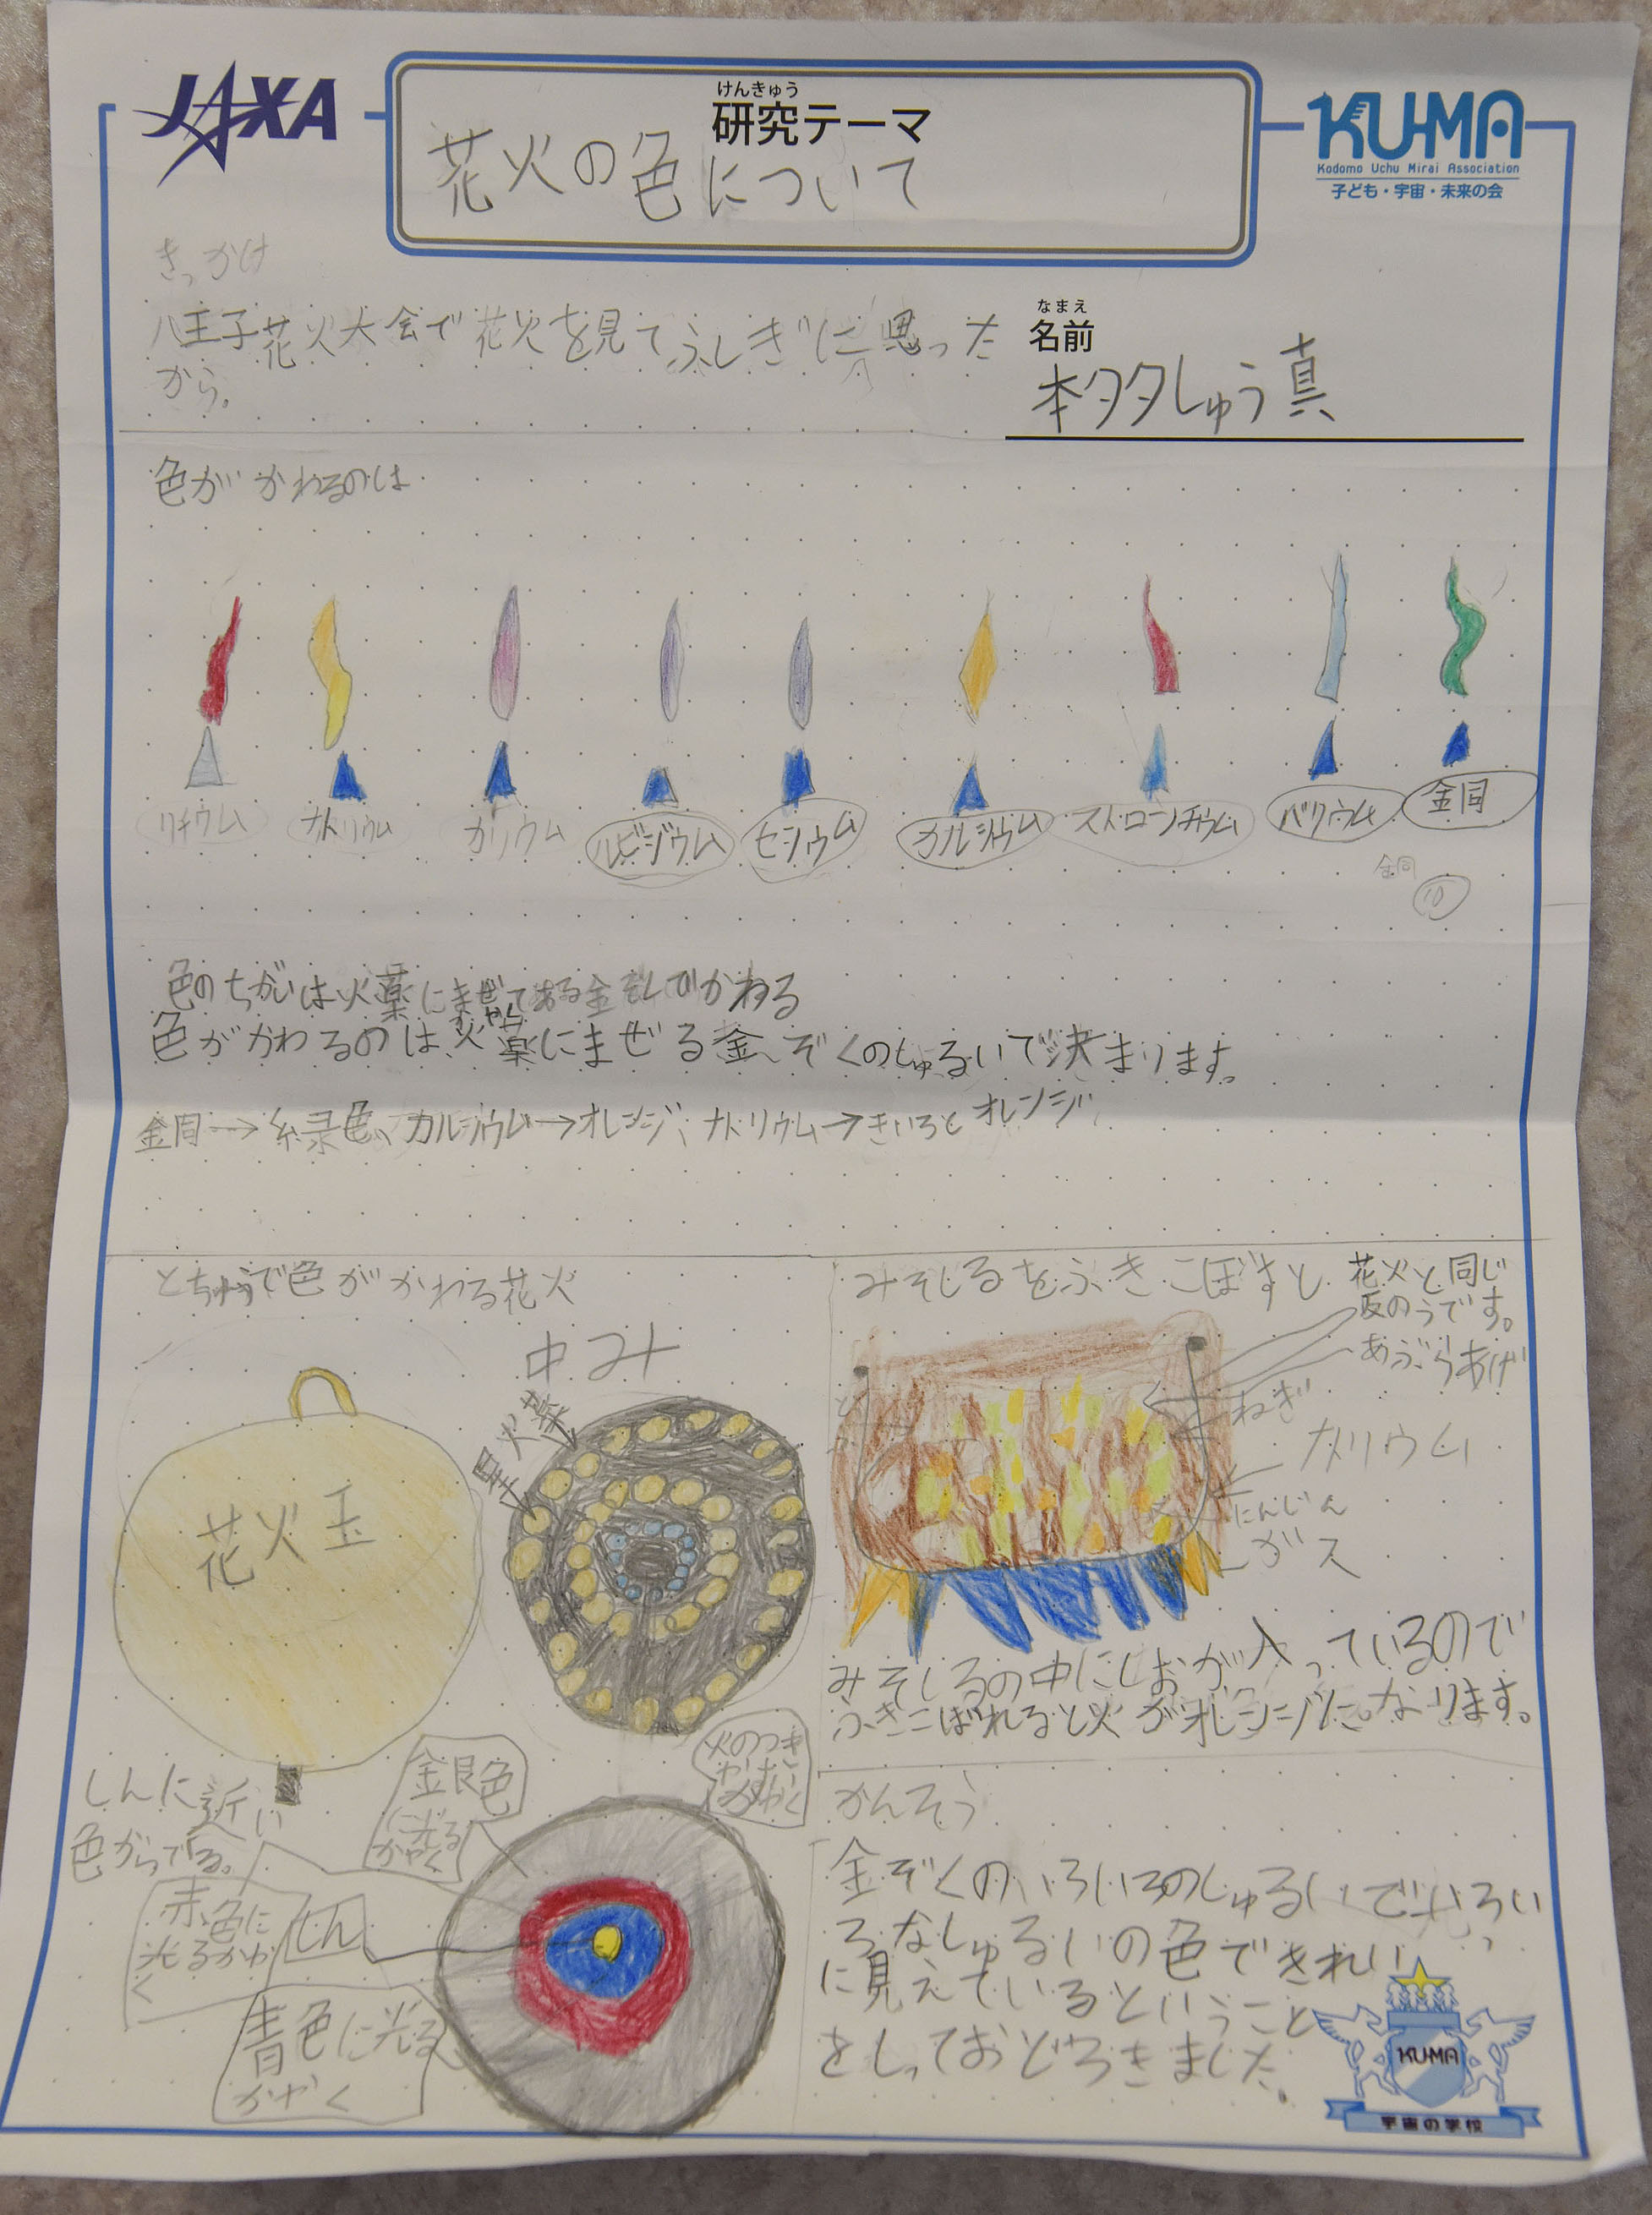 JAXA
けんきゅう
研究テーマ
花火の色について
KU-MA
Kodomo Uchu Mirai Association
子ども・宇宙・未来の会
きっかけ
八王子花火大会で花火を見てふしぎに思った
から。
なまえ
名前
本タタしゅう真
色がかわるのは
リチウム
ナトリウム
カリウム
ルビジウム
セシウム
カルシウム
ストローンチウム
バリウム
金同
金同
10
色のちがいは火薬にまぜてある金ぞくでかわる
かやく
色がかわるのは、火薬にまぜる金ぞくのしゅるいで決まります。
金同→緑色、カルシウム→オレンジ、ナトリウム→きいろとオレンジ
とちゅうで色がかわる花火
中み
火薬
星
花火玉
みそしるをふきこぼすと
花火と同じ
反のうです。
あぶらあげ
ねぎ
ナトリウム
にんじん
ガス
みそしるの中にしおが入っているので
ふきこぼれると火がオレンジになります。
しんに近い
色からでる。
銀色
に光る
かやく
火のつき
やすい
かやく
赤色に
光るかや
く
しん
青色に光る
かやく
かんそう
金ぞくのいろいろのしゅるいでいろい
ろなしゅるいの色できれい
に見えているということ
をしっておどろきました。
KU-MA
宇宙の学校